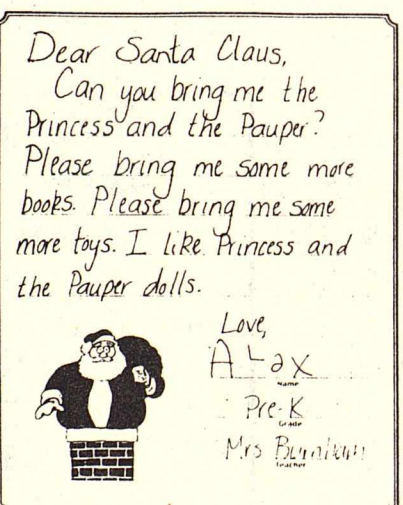 Dear Santa Claus,
Can you bring me the
Princess and the Pauper?
Please bring me some more
books. Please bring me some
more toys. I like Princess and
the Pauper dolls.
Love,
ALax
Name
Pre-K
Grade
Mrs
Teacher